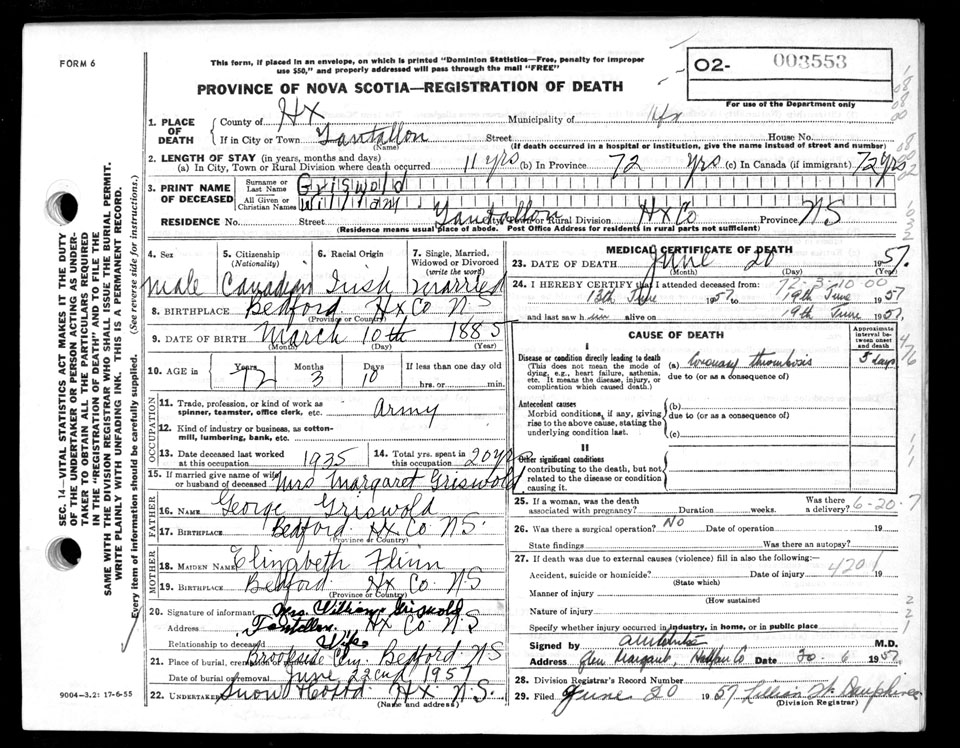 FORM 6
This form, if placed in an envelope, on which is printed "Dominion Statistics—Free, penalty for improper
use $50," and properly addressed will pass through the mail "FREE"
PROVINCE OF NOVA SCOTIA—REGISTRATION OF DEATH
02- 003553
For use of the Department only
1. PLACE OF DEATH
County of Hx Municipality of Hfx
If in City or Town Tantallon Street House No.
(Name) (If death occurred in a hospital or institution, give the name instead of street and number)
2. LENGTH OF STAY (in years, months and days)
(a) In City, Town or Rural Division where death occurred 11 yrs (b) In Province 72 yrs (c) In Canada (if immigrant) 72 yrs
3. PRINT NAME OF DECEASED
Surname or Last Name Griswold
All Given or Christian Names William
RESIDENCE No. Street Tantallon City, Town or Rural Division Hx Co Province NS
(Residence means usual place of abode. Post Office Address for residents in rural parts not sufficient)
4. Sex 5. Citizenship (Nationality) 6. Racial Origin 7. Single, Married, Widowed or Divorced (write the word)
Male Canadian Irish Married
8. BIRTHPLACE Bedford Hx Co N S
(Province or Country)
9. DATE OF BIRTH March 10th 1885
(Month) (Day) (Year)
10. AGE in Years Months Days If less than one day old
72 3 10 hrs. or min.
OCCUPATION
11. Trade, profession, or kind of work as spinner, teamster, office clerk, etc. Army
12. Kind of industry or business, as cotton-mill, lumbering, bank, etc.
13. Date deceased last worked at this occupation 1935 14. Total yrs. spent in this occupation 20 yrs
15. If married give name of wife or husband of deceased Mrs Margaret Griswold
FATHER
16. NAME George Griswold
17. BIRTHPLACE Bedford Hx Co N S.
(Province or Country)
MOTHER
18. MAIDEN NAME Elizabeth Flinn
19. BIRTHPLACE Bedford Hx Co. N S
(Province or Country)
20. Signature of informant Mrs. William Griswold
Address Tantallon Hx Co N S
Relationship to deceased Wife
21. Place of burial, cremation or removal Brookside Cem. Bedford NS
Date of burial or removal June 22nd 1957
22. Undertaker Snow Hx. N.S.
(Name and address)
9004-3.2: 17-6-55
MEDICAL CERTIFICATE OF DEATH
23. DATE OF DEATH June 20 1957.
(Month) (Day) (Year)
72-3-10-00
24. I HEREBY CERTIFY that I attended deceased from:
13th June 1957 to 19th June 1957
and last saw him alive on 19th June 1957.
CAUSE OF DEATH
Approximate interval between onset and death
I
Disease or condition directly leading to death
(This does not mean the mode of dying, e.g., heart failure, asthenia, etc. It means the disease, injury, or complication which caused death.)
(a) Coronary thrombosis 5 days
due to (or as a consequence of)
Antecedent causes
Morbid conditions, if any, giving rise to the above cause, stating the underlying condition last.
(b)
due to (or as a consequence of)
(c)
II
Other significant conditions
contributing to the death, but not related to the disease or condition causing it.
25. If a woman, was the death associated with pregnancy? Duration weeks. Was there a delivery? 6-20-7
26. Was there a surgical operation? No Date of operation 19
State findings Was there an autopsy?
27. If death was due to external causes (violence) fill in also the following:—
Accident, suicide or homicide? Date of injury 4201 19
(State which)
Manner of injury
(How sustained
Nature of injury
Specify whether injury occurred in industry, in home, or in public place
Signed by M.D.
Address Glen Margaret, Halifax Co Date 20 6 1957
28. Division Registrar's Record Number
29. Filed June 20 1957 Lillian W. Dauphinee
(Division Registrar)
SEC. 14—VITAL STATISTICS ACT MAKES IT THE DUTY
OF THE UNDERTAKER OR PERSON ACTING AS UNDER-
TAKER TO OBTAIN ALL THE PARTICULARS REQUIRED
IN THE "REGISTRATION OF DEATH" AND TO FILE THE
SAME WITH THE DIVISION REGISTRAR WHO SHALL ISSUE THE BURIAL PERMIT.
WRITE PLAINLY WITH UNFADING INK. THIS IS A PERMANENT RECORD.
Every item of information should be carefully supplied. (See reverse side for instructions.)